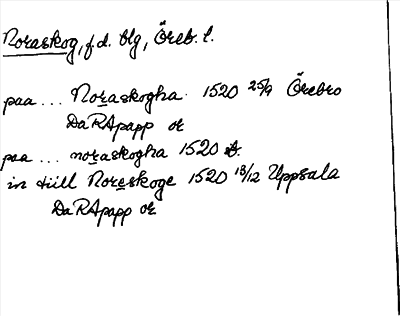 Noraskog, f.d. blg, Öreb. l.
paa ... Noraskogha 1520 25/9 Örebro
DaRApapp or
paa ... noraskogha 1520
in tiill Noreskoge 1520 18/12 Uppsala
DaRApapp or